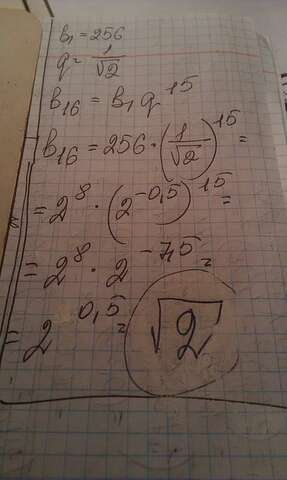 b₁ = 256
q = 1/√2
b₁₆ = b₁ q¹⁵
b₁₆ = 256 · (1/√2)¹⁵ =
= 2⁸ · (2^-0,5)¹⁵ =
= 2⁸ · 2^-7,5 =
= 2^0,5 = √2